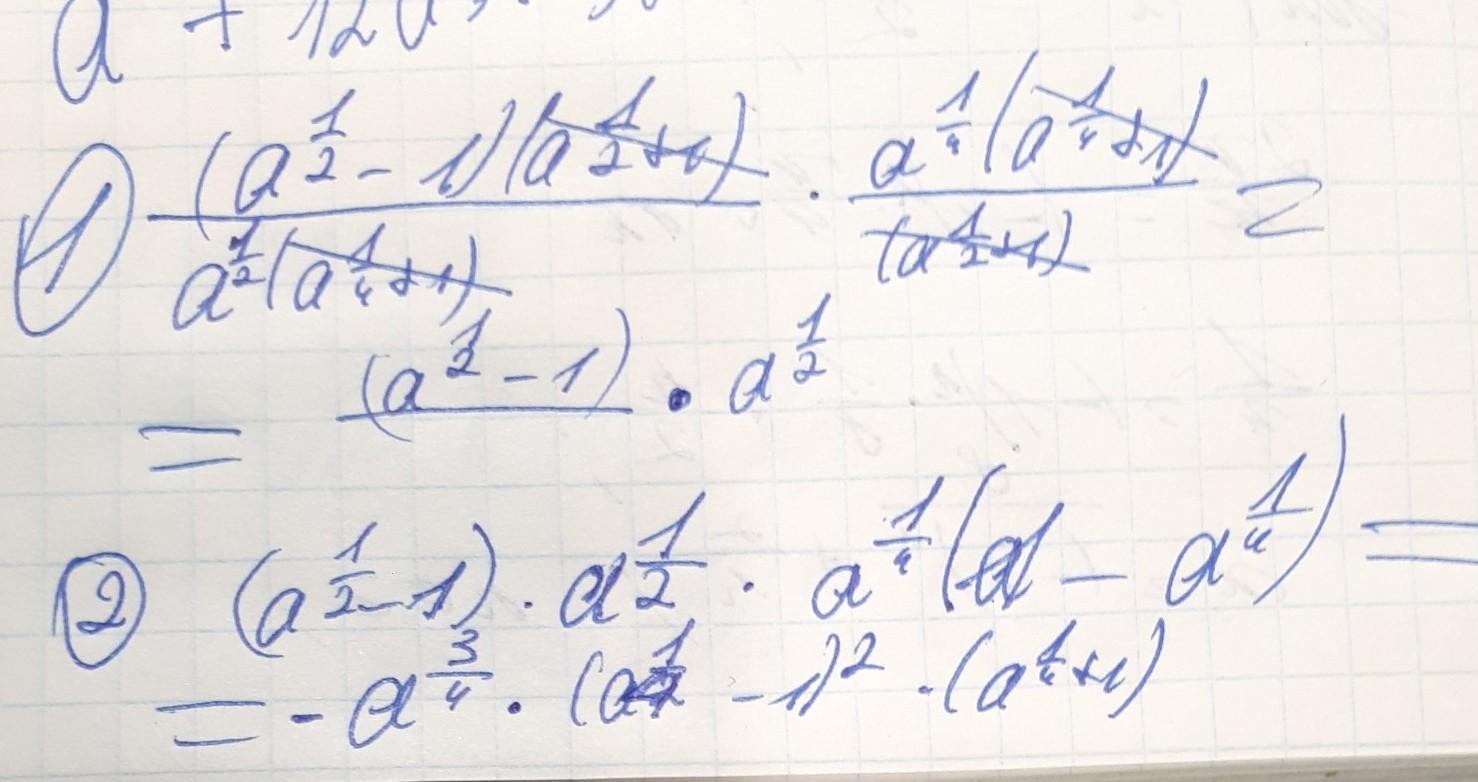 a + 12
① (a^{1/2} - 1)(a^{1/2} + 1) / a^{1/2}(a^{1/4} + 1) · a^{1/4}(a^{1/4} + 1) / (a^{1/2} + 1) =
= (a^{1/2} - 1) · a^{1/2}
② (a^{1/2} - 1) · a^{1/2} · a^{1/4}(1 - a^{1/4}) =
= - a^{3/4} · (a^{1/2} - 1)^2 · (a^{1/4} + 1)